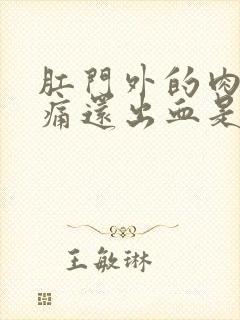 肛門外的肉
痛還出血是
王敏琳